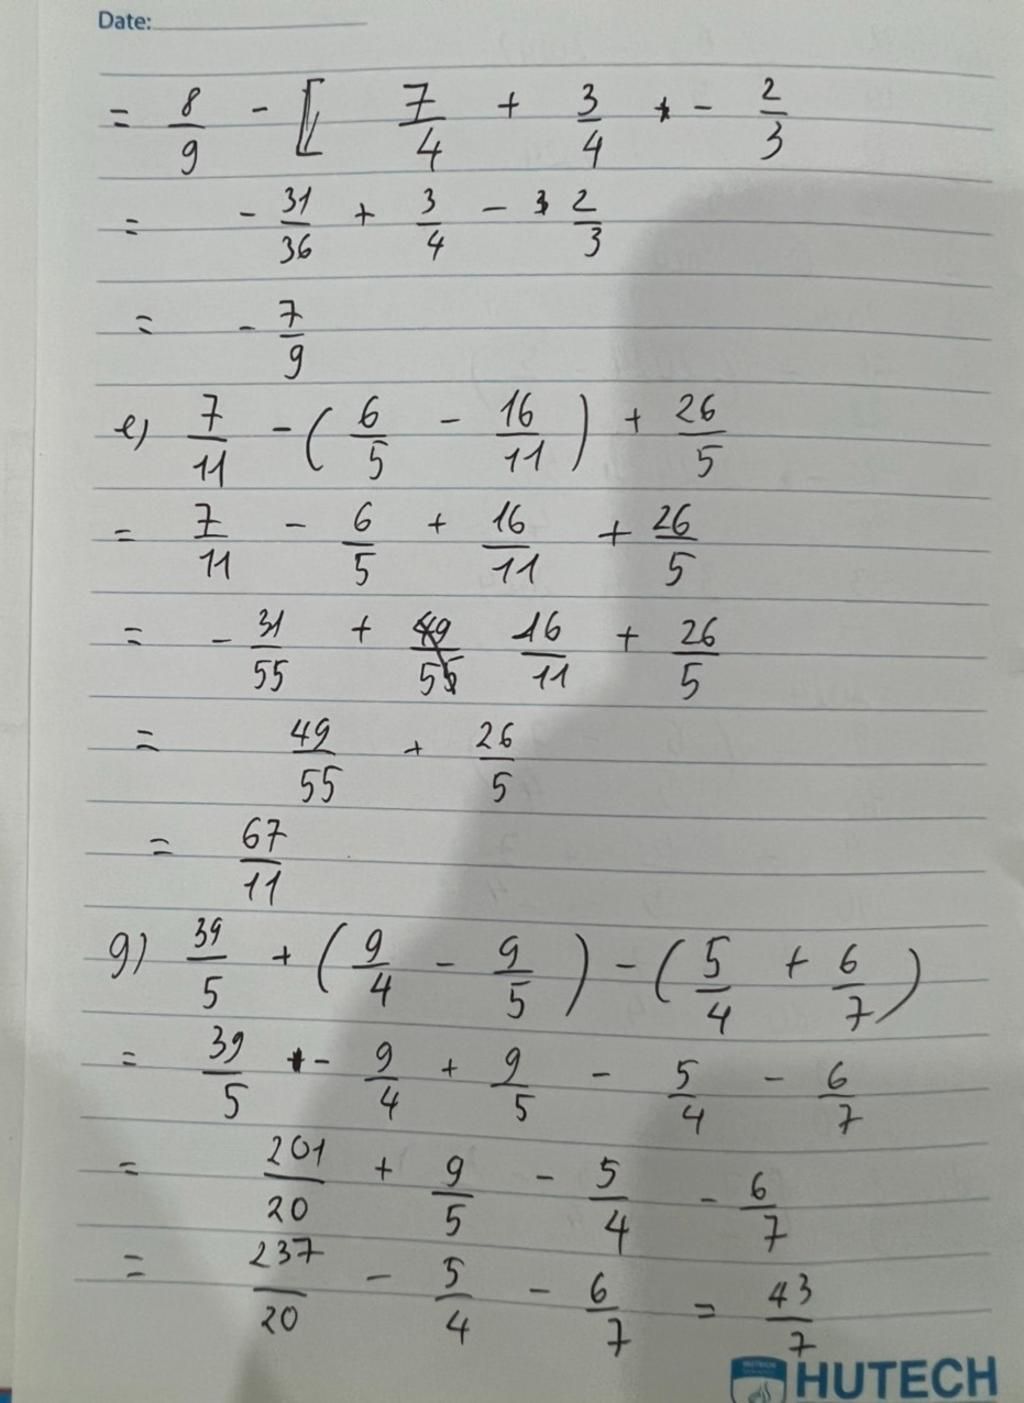 Date:
= 8/9 - [ 7/4 + 3/4 - 2/3
= - 31/36 + 3/4 - 2/3
= - 7/9
e) 7/11 - ( 6/5 - 16/11 ) + 26/5
= 7/11 - 6/5 + 16/11 + 26/5
= - 31/55 + 16/11 + 26/5
= 49/55 + 26/5
= 67/11
g) 39/5 + ( 9/4 - 9/5 ) - ( 5/4 + 6/7 )
= 39/5 - 9/4 + 9/5 - 5/4 - 6/7
= 201/20 + 9/5 - 5/4 - 6/7
= 237/20 - 5/4 - 6/7 = 43/7
HUTECH